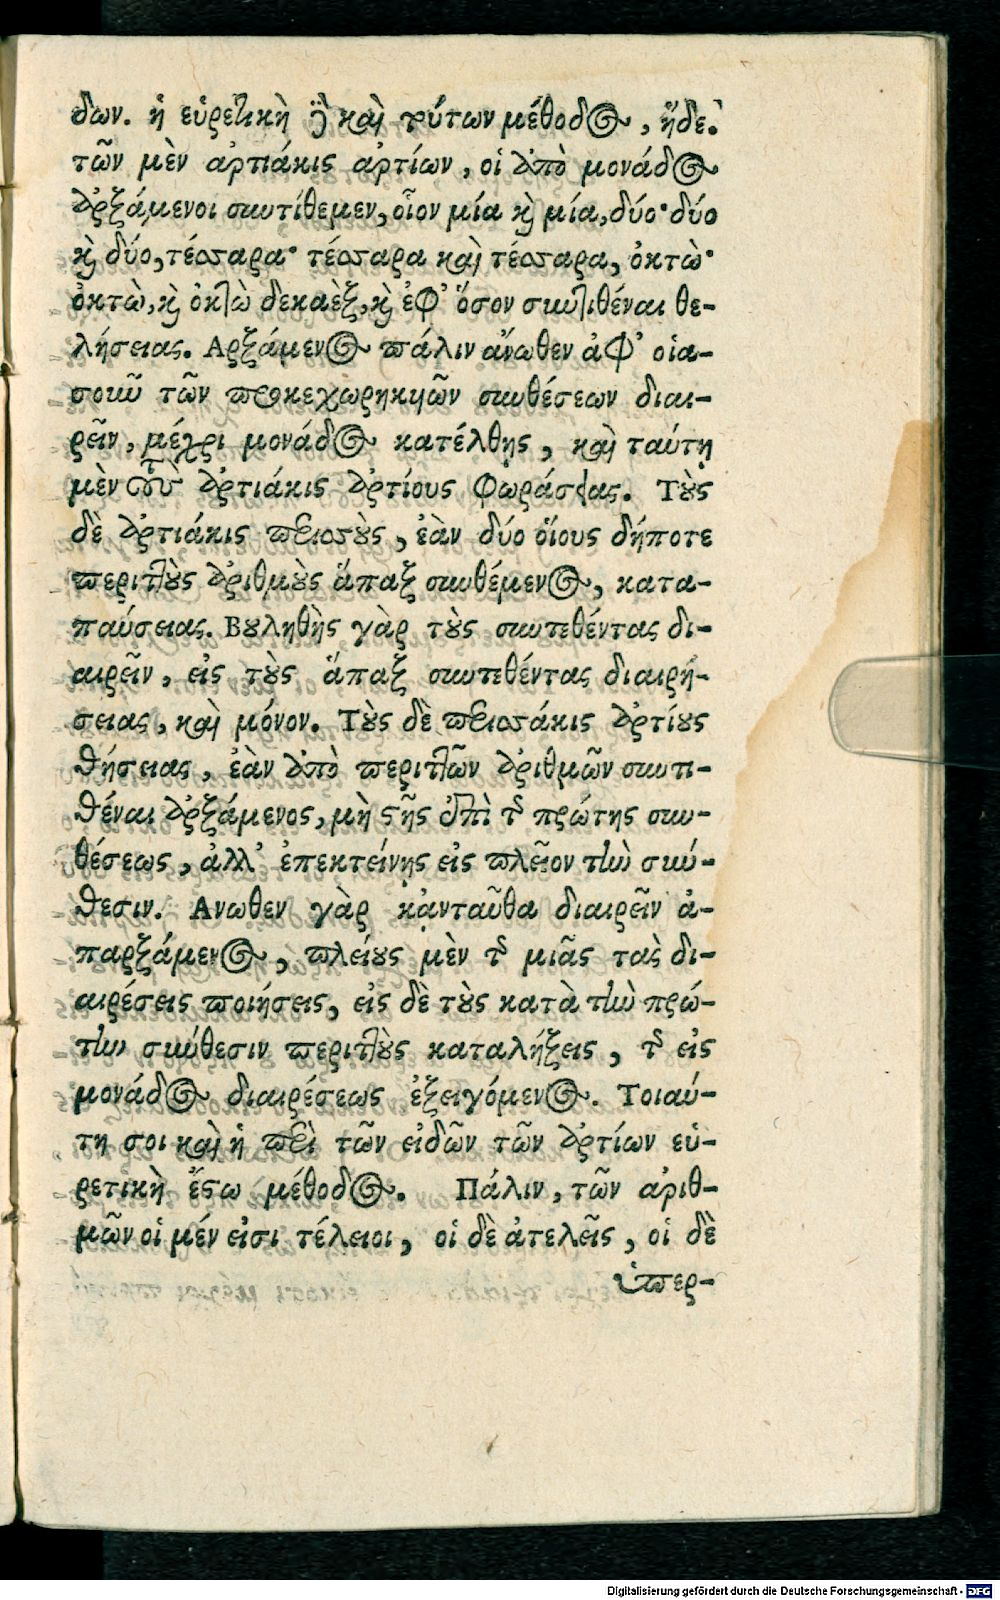 δων. ἡ εὑρετικὴ δὲ καὶ τούτων μέθοδος, ἥδε.
τῶν μὲν ἀρτιάκις ἀρτίων, οἱ ἀπὸ μονάδος
ἀρξάμενοι συντίθεμεν, οἷον μία καὶ μία, δύο· δύο
καὶ δύο, τέσσαρα· τέσσαρα καὶ τέσσαρα, ὀκτὼ·
ὀκτὼ, καὶ ὀκτὼ δεκαὲξ, καὶ ἐφ' ὅσον συντιθέναι θε-
λήσειας. Αρξάμενος πάλιν ἄνωθεν ἀφ' οἱα-
σοιῦν τῶν προκεχωρηκυιῶν συνθέσεων διαι-
ρεῖν, μέχρι μονάδος κατέλθῃς, καὶ ταύτῃ
μὲν τοὺς ἀρτιάκις ἀρτίους φωράσειας. Τοὺς
δὲ ἀρτιάκις περισσοὺς, ἐὰν δύο οἵους δήποτε
περιττοὺς ἀριθμοὺς ἅπαξ συνθέμενος, κατα-
παύσειας. Βουληθὴς γὰρ τοὺς συντεθέντας δι-
αιρεῖν, εἰς τοὺς ἅπαξ συντεθέντας διαιρή-
σειας, καὶ μόνον. Τοὺς δὲ περισσάκις ἀρτίους
θήσειας, ἐὰν ἀπὸ περιττῶν ἀριθμῶν συντι-
θέναι ἀρξάμενος, μὴ στῇς ἐπὶ τῆς πρώτης συν-
θέσεως, ἀλλ' ἐπεκτείνῃς εἰς πλεῖον τὴν σύν-
θεσιν. Ανωθεν γὰρ κᾀνταῦθα διαιρεῖν ἀ-
παρξάμενος, πλείους μὲν τῆς μιᾶς τὰς δι-
αιρέσεις ποιήσεις, εἰς δὲ τοὺς κατὰ τὴν πρώ-
την σύνθεσιν περιττοὺς καταλήξεις, τῆς εἰς
μονάδος διαιρέσεως ἐξειργόμενος. Τοιαύ-
τη σοι καὶ ἡ περὶ τῶν εἰδῶν τῶν ἀρτίων εὑ-
ρετικὴ ἔστω μέθοδος. Πάλιν, τῶν ἀριθ-
μῶν οἱ μέν εἰσι τέλειοι, οἱ δὲ ἀτελεῖς, οἱ δὲ
ὑπερ-
Digitalisierung gefördert durch die Deutsche Forschungsgemeinschaft - DFG